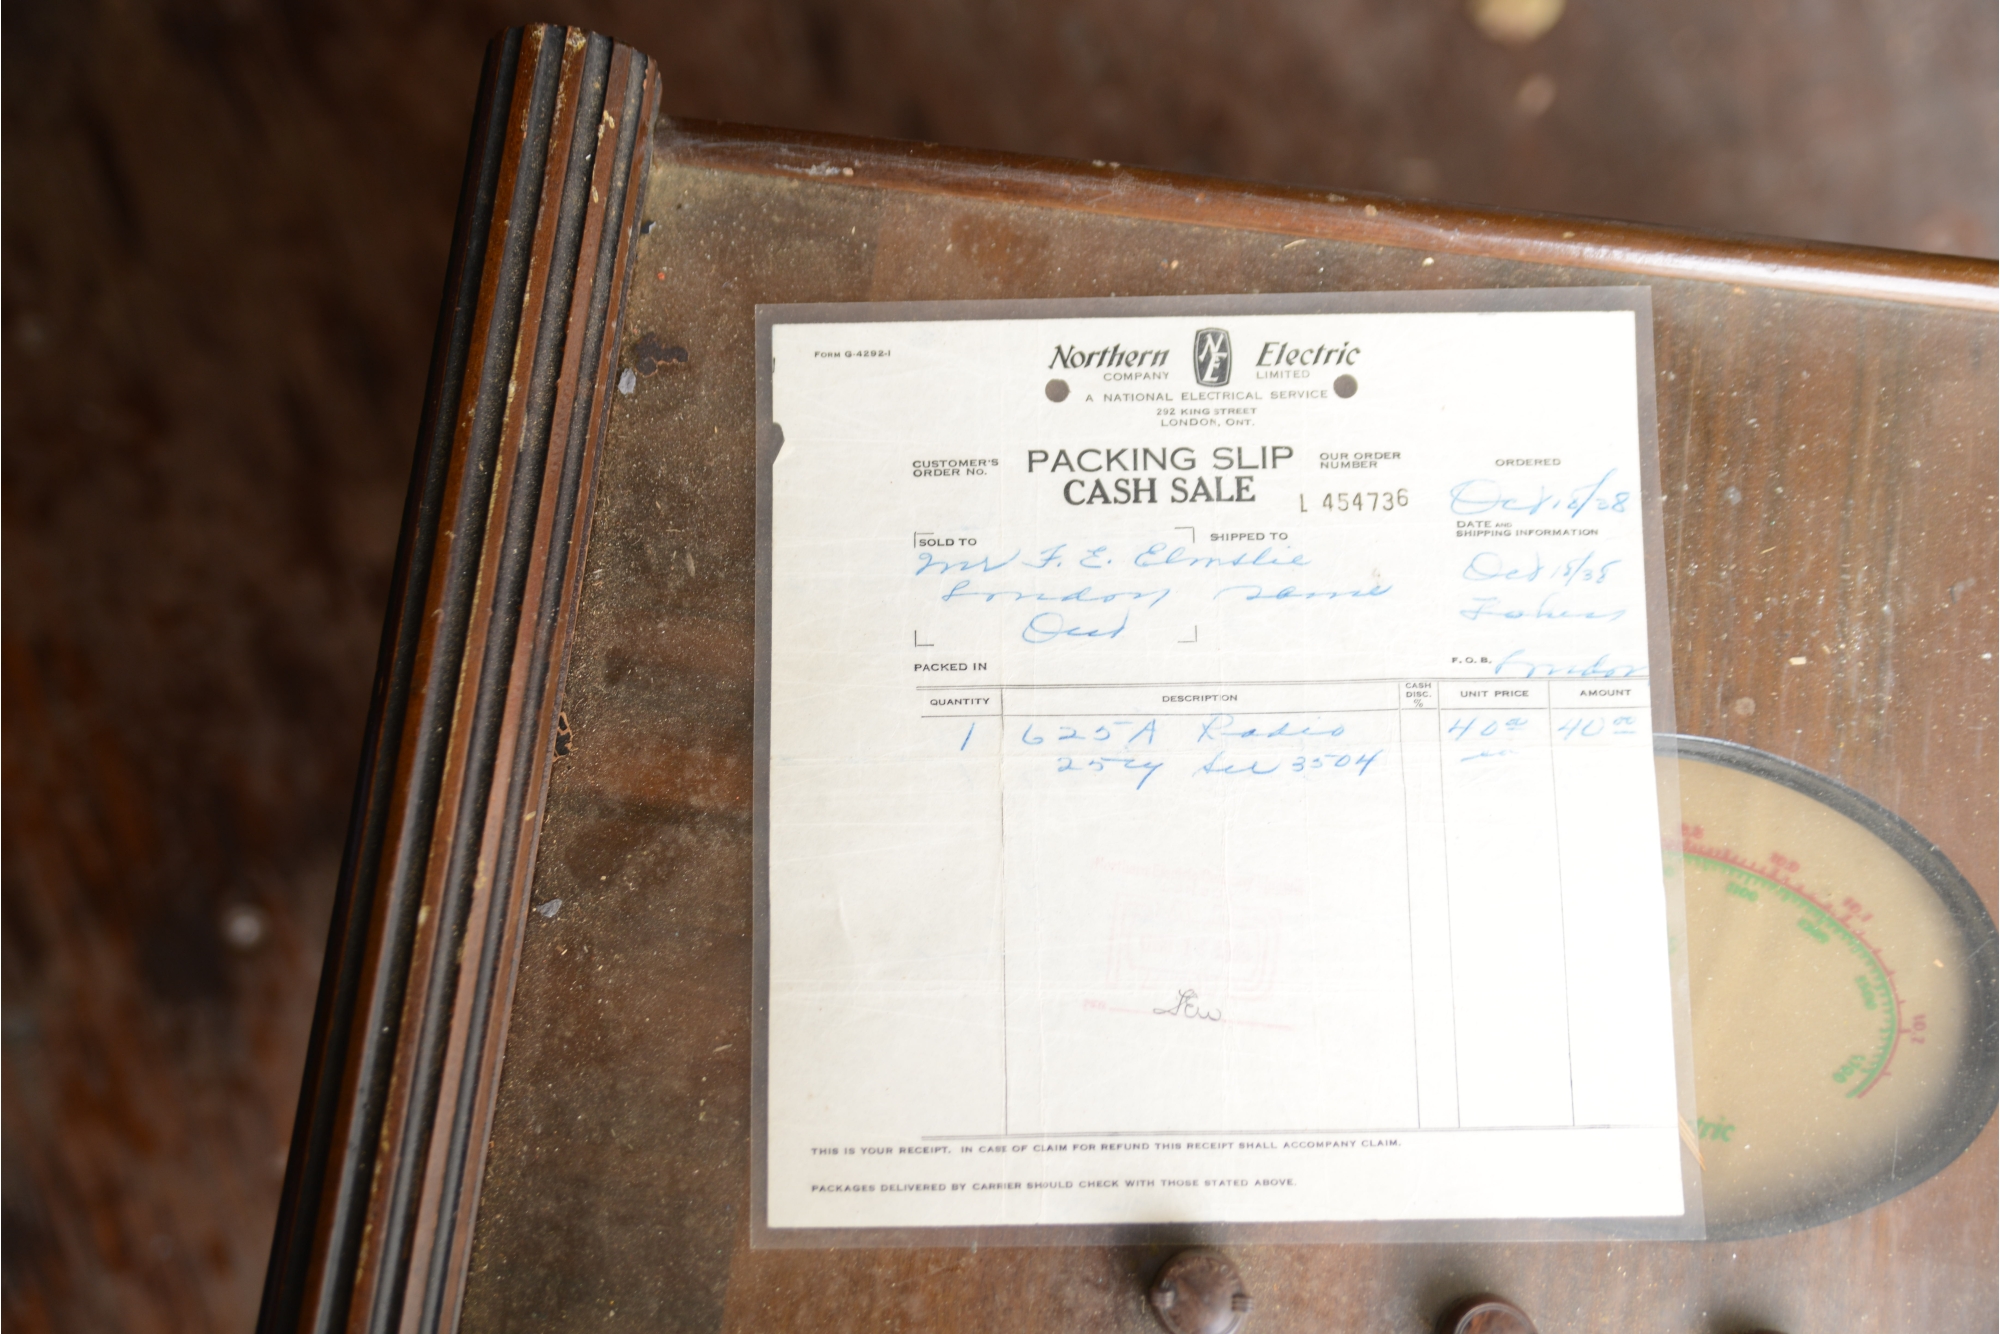 FORM G-4292-1
Northern NE Electric
COMPANY LIMITED
A NATIONAL ELECTRICAL SERVICE
292 KING STREET
LONDON, ONT.
CUSTOMER'S ORDER NO.
PACKING SLIP
CASH SALE
OUR ORDER NUMBER
L 454736
ORDERED
Oct 18/38
SOLD TO
SHIPPED TO
DATE AND SHIPPING INFORMATION
Mr F. E. Elmslie
London same
Ont
Oct 18/38
PACKED IN
F.O.B. London
QUANTITY DESCRIPTION CASH DISC. % UNIT PRICE AMOUNT
1 625A Radio 40 00 40 00
25cy Ser 3504 ea
THIS IS YOUR RECEIPT. IN CASE OF CLAIM FOR REFUND THIS RECEIPT SHALL ACCOMPANY CLAIM.
PACKAGES DELIVERED BY CARRIER SHOULD CHECK WITH THOSE STATED ABOVE.
tric